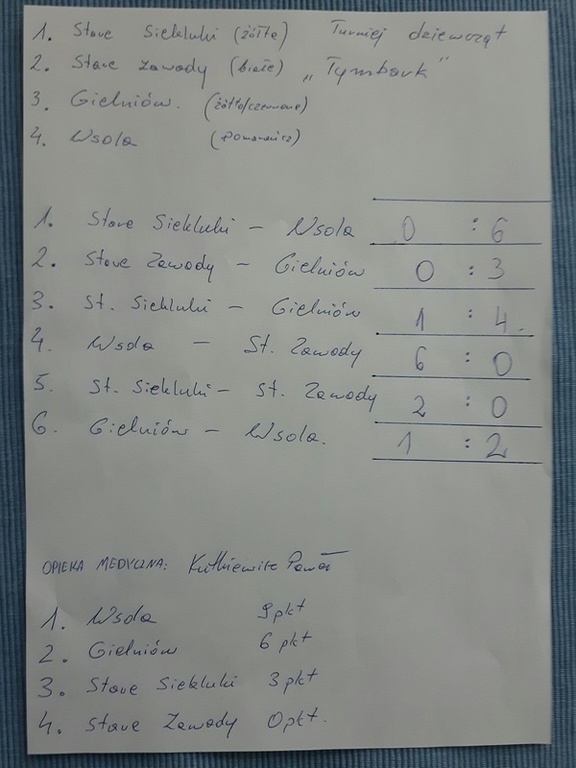 1. Stare Siekluki (żółte) Turniej dziewcząt
2. Stare Zawody (białe) „Tymbark"
3. Gielniów. (żółto/czerwone)
4. Wsola (pomarańcz)
1. Stare Siekluki – Wsola 0 : 6
2. Stare Zawody – Gielniów 0 : 3
3. St. Siekluki – Gielniów 1 : 4
4. Wsola – St. Zawody 6 : 0
5. St. Siekluki – St. Zawody 2 : 0
6. Gielniów – Wsola. 1 : 2
OPIEKA MEDYCZNA:
1. Wsola 9 pkt
2. Gielniów 6 pkt
3. Stare Siekluki 3 pkt
4. Stare Zawody 0 pkt.